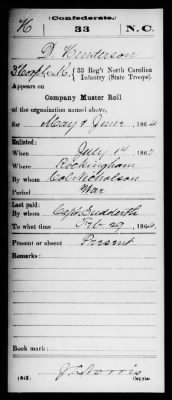 (Confederate.)
H 33 N.C.
D Henderson
Co. K, 33 Reg't North Carolina
Infantry (State Troops).
Appears on
Company Muster Roll
of the organization named above,
for May & June, 1864.
Enlisted:
When July 1st, 1862
Where Rockingham
By whom Col. Nicholson
Period War
Last paid:
By whom Capt. Sudderth
To what time Feb. 29, 1864.
Present or absent Present
Remarks:
Book mark:
J. C. Norris
Copyist.